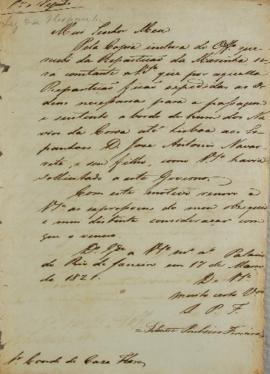 Meu Senhor Meu
Pela Copia inclusa do Officio que
me da Repartição da Marinha
constante a V. S.ª que por aquella
Repartição ficão expedidas as or-
dens necessarias para a passagem
e sustento a bordo de hum dos Na-
vios da Coroa até Lisboa ao
D. José Antonio Navar-
rete, e seu filho, como V. S.ª havia
sollicitado a este Governo.
Com este motivo renovo a
V. S.ª as expressoens do meu obsequio
e mui distincta consideração com
que o venero
D.s G.de a V. S.ª m.s a.s Palacio
do Rio de Janeiro em 17 de
de 1821.
De V. S.ª
muito certo
Silvestre Pinheiro Ferreira
Sr. Conde de Caza Flores